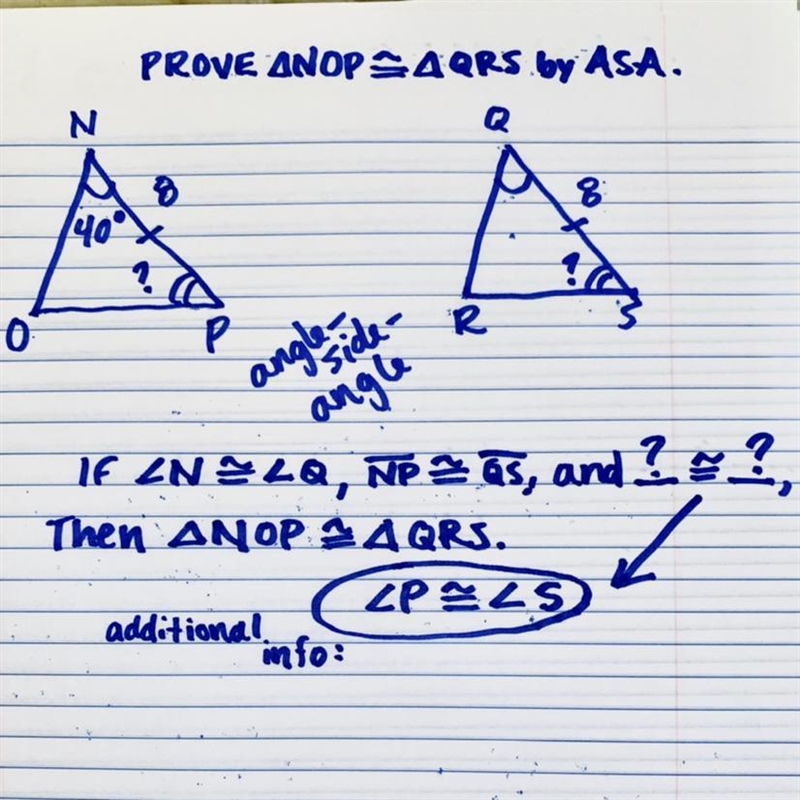 PROVE ΔNOP ≅ ΔQRS by ASA.
N
Q
8
8
40°
?
?
O
P
R
S
angle-
side-
angle
IF ∠N ≅ ∠Q, N̅P̅ ≅ Q̅S̅, and ? ≅ ?,
Then ΔNOP ≅ ΔQRS.
∠P ≅ ∠S
additional
info: